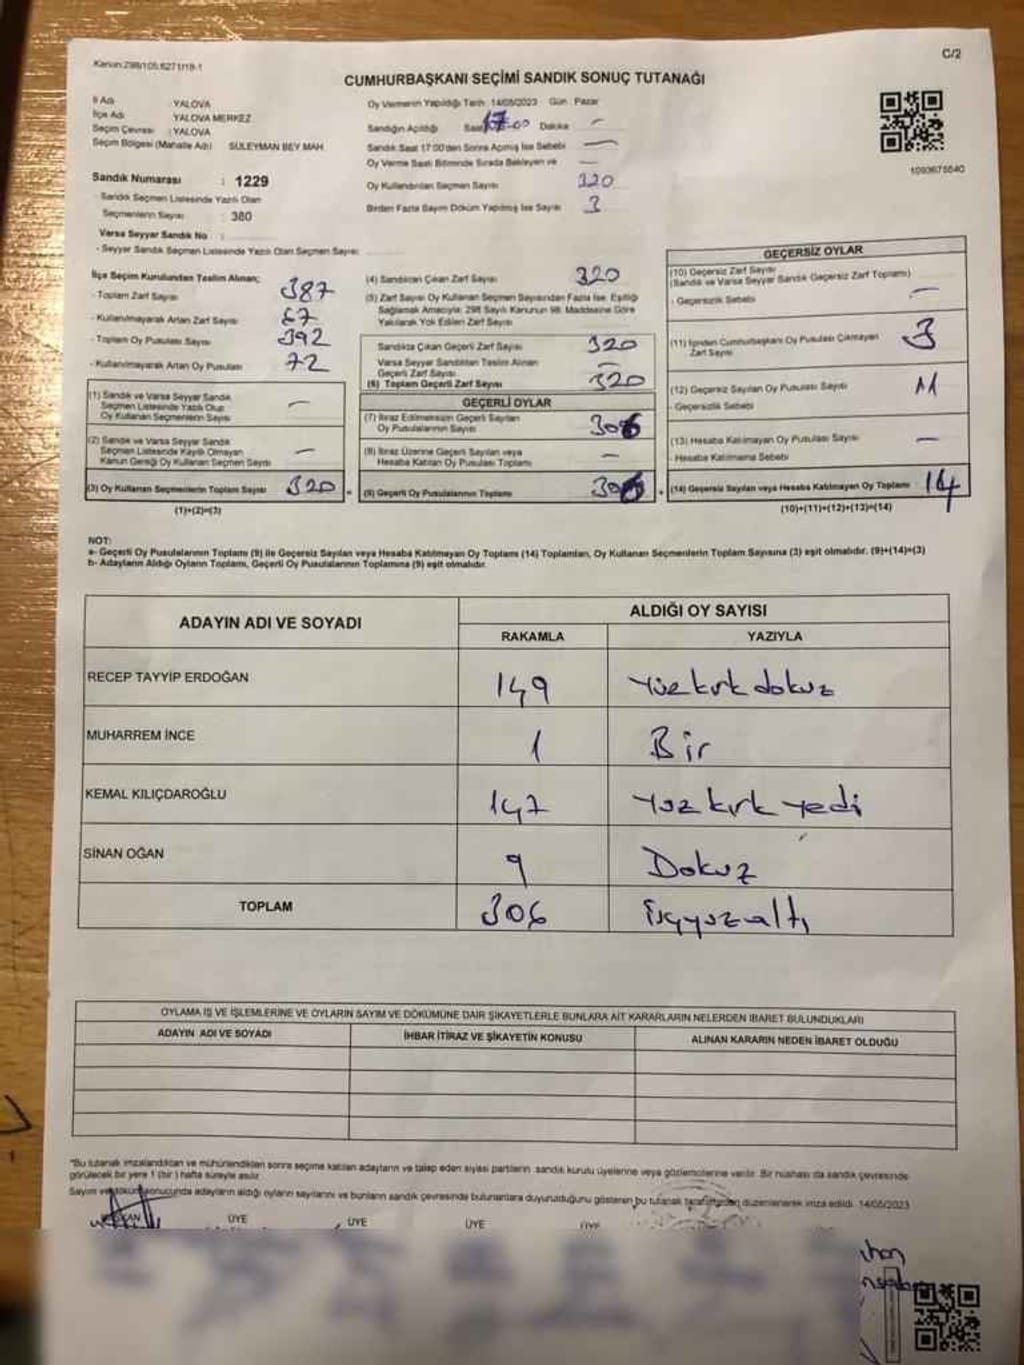 Kanun:298/105,6271/19-1
C/2
CUMHURBAŞKANI SEÇİMİ SANDIK SONUÇ TUTANAĞI
İl Adı YALOVA
İlçe Adı YALOVA MERKEZ
Seçim Çevresi : YALOVA
Seçim Bölgesi (Mahalle Adı) SÜLEYMAN BEY MAH.
Sandık Numarası : 1229
- Sandık Seçmen Listesinde Yazılı Olan
Seçmenlerin Sayısı : 380
Varsa Seyyar Sandık No :
- Seyyar Sandık Seçmen Listesinde Yazılı Olan Seçmen Sayısı:
Oy Vermenin Yapıldığı Tarih: 14/05/2023 Gün : Pazar
Sandığın Açıldığı Saat 17:00 Dakika -
Sandık Saat 17:00'den Sonra Açılmış İse Sebebi -
Oy Verme Saati Bitiminde Sırada Bekleyen ve -
Oy Kullandırılan Seçmen Sayısı 320
Birden Fazla Sayım Döküm Yapılmış İse Sayısı 3
1093675640
İlçe Seçim Kurulundan Teslim Alınan;
- Toplam Zarf Sayısı 387
- Kullanılmayarak Artan Zarf Sayısı 67
- Toplam Oy Pusulası Sayısı 392
- Kullanılmayarak Artan Oy Pusulası 72
(1) Sandık ve Varsa Seyyar Sandık
Seçmen Listesinde Yazılı Olup
Oy Kullanan Seçmenlerin Sayısı -
(2) Sandık ve Varsa Seyyar Sandık
Seçmen Listesinde Kayıtlı Olmayan
Kanun Gereği Oy Kullanan Seçmen Sayısı -
(3) Oy Kullanan Seçmenlerin Toplam Sayısı 320
(1)+(2)=(3)
(4) Sandıktan Çıkan Zarf Sayısı 320
(5) Zarf Sayısı Oy Kullanan Seçmen Sayısından Fazla İse, Eşitliği
Sağlamak Amacıyla; 298 Sayılı Kanunun 98. Maddesine Göre
Yakılarak Yok Edilen Zarf Sayısı
Sandıkta Çıkan Geçerli Zarf Sayısı 320
Varsa Seyyar Sandıktan Teslim Alınan
Geçerli Zarf Sayısı -
(6) Toplam Geçerli Zarf Sayısı 320
GEÇERLİ OYLAR
(7) İtiraz Edilmeksizin Geçerli Sayılan
Oy Pusulalarının Sayısı 306
(8) İtiraz Üzerine Geçerli Sayılan veya
Hesaba Katılan Oy Pusulası Toplamı -
(9) Geçerli Oy Pusulalarının Toplamı 306
GEÇERSİZ OYLAR
(10) Geçersiz Zarf Sayısı
(Sandık ve Varsa Seyyar Sandık Geçersiz Zarf Toplamı)
- Geçersizlik Sebebi -
(11) İçinden Cumhurbaşkanı Oy Pusulası Çıkmayan
Zarf Sayısı 3
(12) Geçersiz Sayılan Oy Pusulası Sayısı 11
- Geçersizlik Sebebi
(13) Hesaba Katılmayan Oy Pusulası Sayısı -
- Hesaba Katılmama Sebebi
(14) Geçersiz Sayılan veya Hesaba Katılmayan Oy Toplamı 14
(10)+(11)+(12)+(13)=(14)
NOT:
a- Geçerli Oy Pusulalarının Toplamı (9) ile Geçersiz Sayılan veya Hesaba Katılmayan Oy Toplamı (14) Toplamları, Oy Kullanan Seçmenlerin Toplam Sayısına (3) eşit olmalıdır. (9)+(14)=(3)
b- Adayların Aldığı Oyların Toplamı, Geçerli Oy Pusulalarının Toplamına (9) eşit olmalıdır.
ADAYIN ADI VE SOYADI ALDIĞI OY SAYISI
RAKAMLA YAZIYLA
RECEP TAYYİP ERDOĞAN 149 Yüzkırkdokuz
MUHARREM İNCE 1 Bir
KEMAL KILIÇDAROĞLU 147 Yüzkırkyedi
SİNAN OĞAN 9 Dokuz
TOPLAM 306 Üçyüzaltı
OYLAMA İŞ VE İŞLEMLERİNE VE OYLARIN SAYIM VE DÖKÜMÜNE DAİR ŞİKAYETLERLE BUNLARA AİT KARARLARIN NELERDEN İBARET BULUNDUKLARI
ADAYIN ADI VE SOYADI İHBAR İTİRAZ VE ŞİKAYETİN KONUSU ALINAN KARARIN NEDEN İBARET OLDUĞU
"Bu tutanak imzalandıktan ve mühürlendikten sonra seçime katılan adayların ve talep eden siyasi partilerin sandık kurulu üyelerine veya gözlemcilerine verilir. Bir nüshası da sandık çevresinde
görülecek bir yere 1 (bir) hafta süreyle asılır.
Sayım ve döküm sonucunda adayların aldığı oyların sayılarını ve bunların sandık çevresinde bulunanlara duyurulduğunu gösteren bu tutanak tarafımızdan düzenlenerek imza edildi. 14/05/2023
BAŞKAN ÜYE ÜYE ÜYE ÜYE